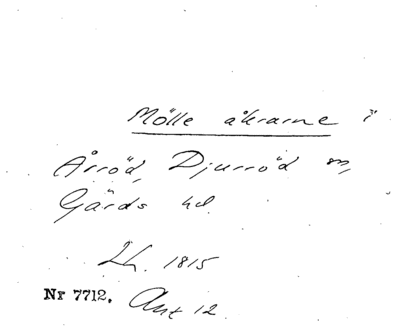 Mölle åkrarne i
Årröd, Djurröd sn,
Gärds hd.
Lh. 1815
Nr 7712. Akt 12.